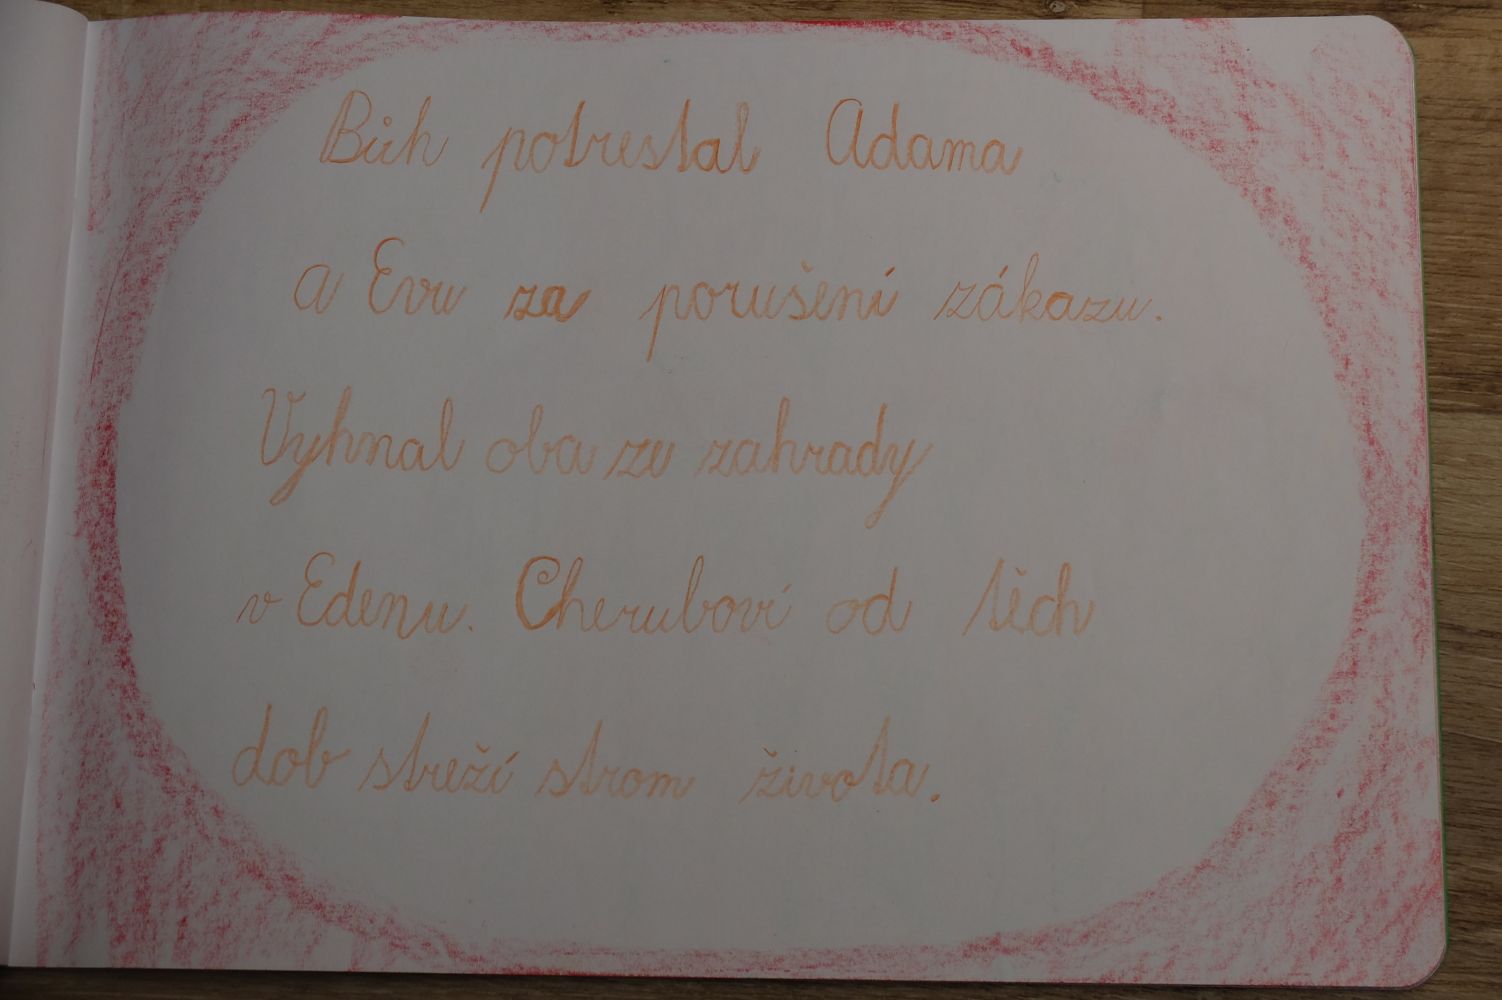 Bůh potrestal Adama
a Evu za porušení zákazu.
Vyhnal oba ze zahrady
v Edenu. Cherubové od těch
dob streží strom života.